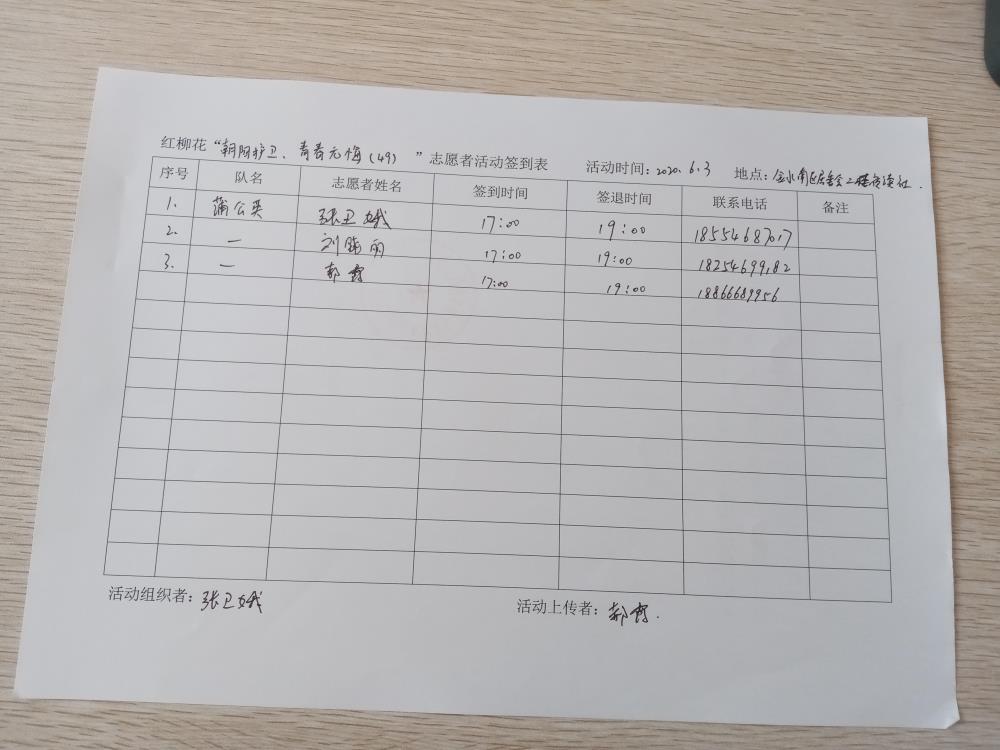 红柳花“朝阳护卫、青春无悔（49） ”志愿者活动签到表 活动时间：2020.6.3 地点：
序号 队名 志愿者姓名 签到时间 签退时间 联系电话 备注
1. 蒲公英 张卫娥 17:00 19:00 18554687017
2. — 刘晓丽 17:00 19:00 18254699182
3. — 郝霞 17:00 19:00 18866689956
活动组织者：张卫娥 活动上传者：郝霞.